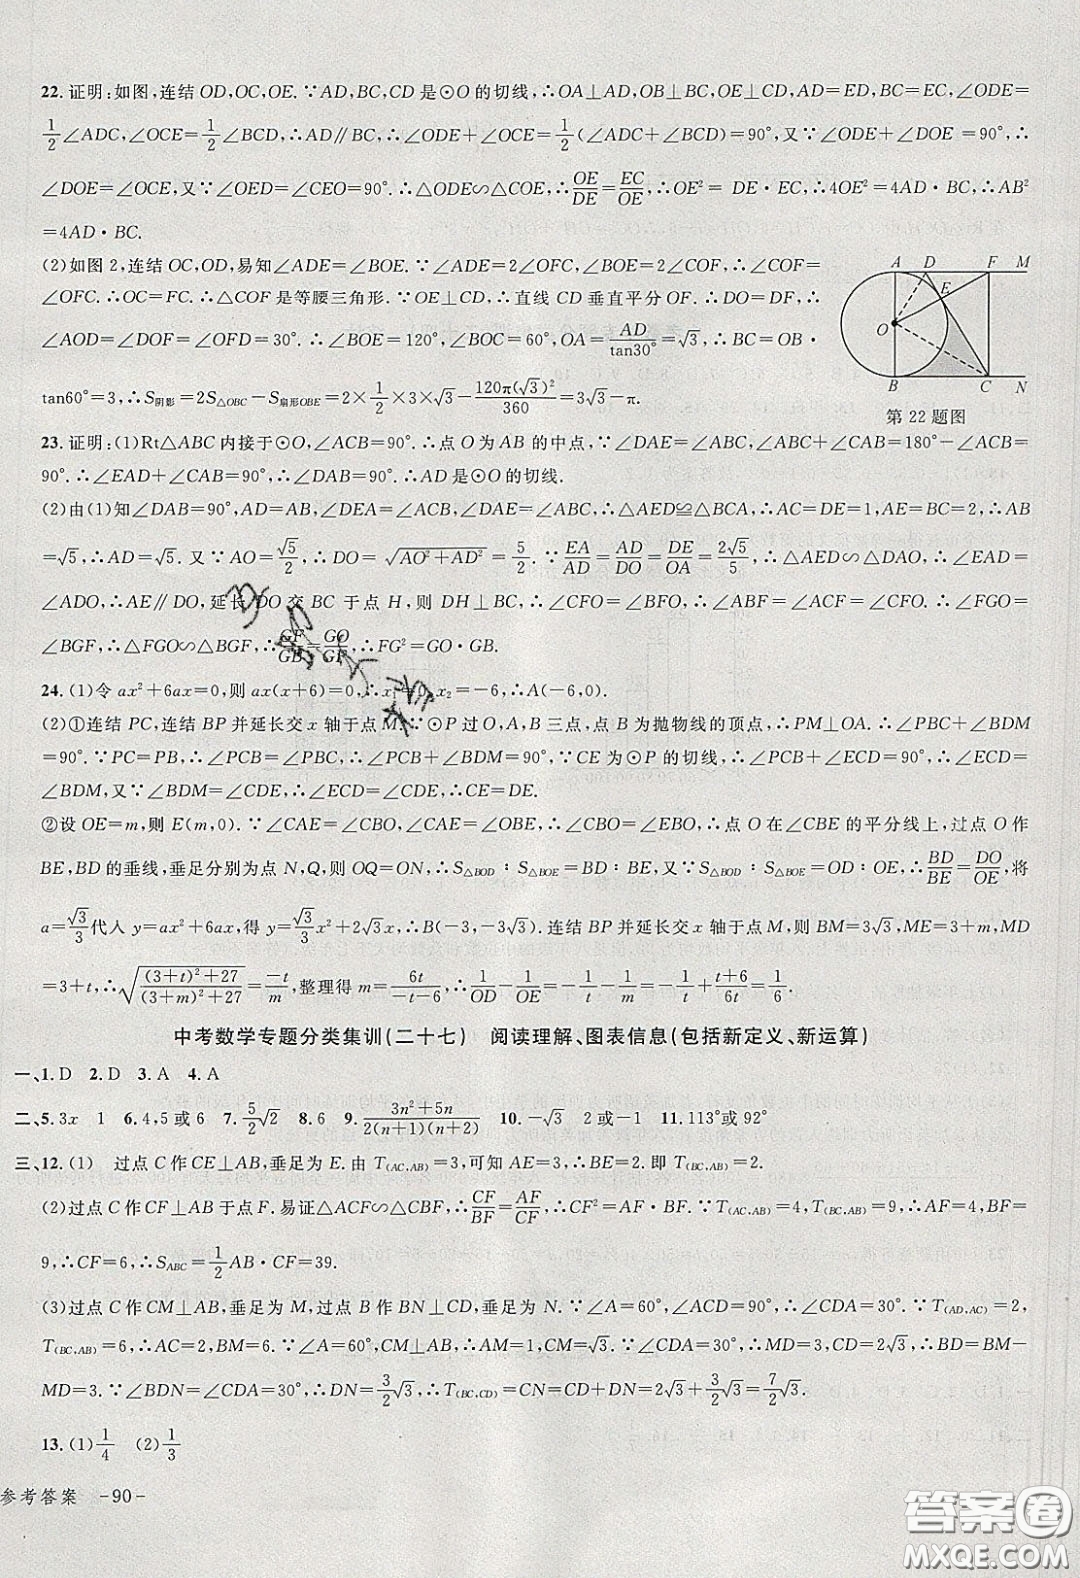 22. 证明:如图,连结 OD,OC,OE. ∵AD,BC,CD 是⊙O 的切线,∴OA⊥AD,OB⊥BC,OE⊥CD,AD=ED,BC=EC,∠ODE=
1/2∠ADC,∠OCE=1/2∠BCD,∴AD∥BC,∴∠ODE+∠OCE=1/2(∠ADC+∠BCD)=90°,又∵∠ODE+∠DOE=90°,∴
∠DOE=∠OCE,又∵∠OED=∠CEO=90°.∴△ODE∽△COE,∴OE/DE=EC/OE,∴OE²= DE·EC,∴4OE²=4AD·BC,∴AB²
=4AD·BC.
(2)如图 2,连结 OC,OD,易知∠ADE=∠BOE. ∵∠ADE=2∠OFC,∠BOE=2∠COF,∴∠COF=
∠OFC. ∴OC=FC. ∴△COF 是等腰三角形. ∵OE⊥CD,∴直线 CD 垂直平分 OF. ∴DO=DF,∴
∠AOD=∠DOF=∠OFD=30°. ∴∠BOE=120°,∠BOC=60°,OA=AD/tan30°=√3,∴BC=OB·
tan60°=3,∴S阴影=2S△OBC−S扇形OBE=2×1/2×3×√3−120π(√3)²/360=3√3−π.
A D F M
E
O
B C N
第 22 题图
23. 证明:(1)Rt△ABC 内接于⊙O,∠ACB=90°. ∴点 O 为 AB 的中点,∵∠DAE=∠ABC,∴∠DAE+∠CAB=180°−∠ACB=
90°. ∴∠EAD+∠CAB=90°. ∴∠DAB=90°. ∴AD 是⊙O 的切线.
(2)由(1)知∠DAB=90°,AD=AB,∠DEA=∠ACB=90°,∠DAE=∠ABC,∴△AED≌△BCA,∴AC=DE=1,AE=BC=2,∴AB
=√5,∴AD=√5. 又∵AO=√5/2,∴DO=√(AO²+AD²)=5/2. ∵EA/AD=AD/DO=DE/OA=2√5/5,∴△AED∽△DAO,∴∠EAD=
∠ADO,∴AE∥DO,延长 DO 交 BC 于点 H,则 DH⊥BC,∴∠CFO=∠BFO,∴∠AFC=∠BFG=∠AFC=∠CFO. ∴∠FGO=
∠BGF,∴△FGO∽△BGF,∴GF/GB=GO/GF,∴FG²=GO·GB.
24. (1)令 ax²+6ax=0,则 ax(x+6)=0,∴x₁=0,x₂=−6,∴A(−6,0).
(2)①连结 PC,连结 BP 并延长交 x 轴于点 M,∵⊙P 过 O,A,B 三点,点 B 为抛物线的顶点,∴PM⊥OA. ∴∠PBC+∠BDM
=90°. ∵PC=PB,∴∠PCB=∠PBC,∴∠PCB+∠BDM=90°. ∵CE 为⊙P 的切线,∴∠PCB+∠ECD=90°,∴∠ECD=
∠BDM,又∵∠BDM=∠CDE,∴∠ECD=∠CDE,∴CE=DE.
②设 OE=m,则 E(m,0). ∵∠CAE=∠CBO,∠CAE=∠OBE,∴∠CBO=∠EBO,∴点 O 在∠CBE 的平分线上,过点 O 作
BE,BD 的垂线,垂足分别为点 N,Q,则 OQ=ON,∴S△BOD∶S△BOE=BD∶BE,又∵S△BOD∶S△BOE=OD∶OE,∴BD/BE=DO/OE,∴将
a=√3/3代人 y=ax²+6ax,得 y=√3/3x²+2√3x,∴B(−3,−3√3). 连结 BP 并延长交 x 轴于点 M,则 BM=3√3,ME=3+m,MD
=3+t,∴√((3+t)²+27)/((3+m)²+27)=−t/m,整理得 m=6t/(−t−6),∴1/OD−1/OE=−1/t−1/m=−1/t+(t+6)/6t=1/6.
中考数学专题分类集训(二十七) 阅读理解、图表信息(包括新定义、新运算)
一、1. D 2. D 3. A 4. A
二、5. 3x 1 6. 4,5 或 6 7. 5/2√2 8. 6 9. (3n²+5n)/(2(n+1)(n+2)) 10. −√3 2 或−1 11. 113°或 92°
三、12. (1) 过点 C 作 CE⊥AB,垂足为 E. 由 T(AC,AB)=3,可知 AE=3,∴BE=2. 即 T(BC,AB)=2.
(2)过点 C 作 CF⊥AB 于点 F. 易证△ACF∽△CBF,∴CF/BF=AF/CF,∴CF²=AF·BF. ∵T(AC,AB)=4,T(BC,AB)=9,∴AF=4,BF=
9,∴CF=6,∴SABC=1/2AB·CF=39.
(3)过点 C 作 CM⊥AB,垂足为 M,过点 B 作 BN⊥CD,垂足为 N. ∵∠A=60°,∠ACD=90°,∴∠CDA=30°. ∵T(AD,AC)=2,
T(BC,AB)=6,∴AC=2,BM=6. ∵∠A=60°,CM⊥AB,∴AM=1,CM=√3. ∵∠CDA=30°,∴MD=3,CD=2√3,∴BD=BM−
MD=3. ∵∠BDN=∠CDA=30°,∴DN=3/2√3,∴T(BC,CD)=CN=CD+DN=2√3+3/2√3=7/2√3.
13. (1)1/4 (2)1/3
参考答案 -90-
答案圈
MXQE.COM